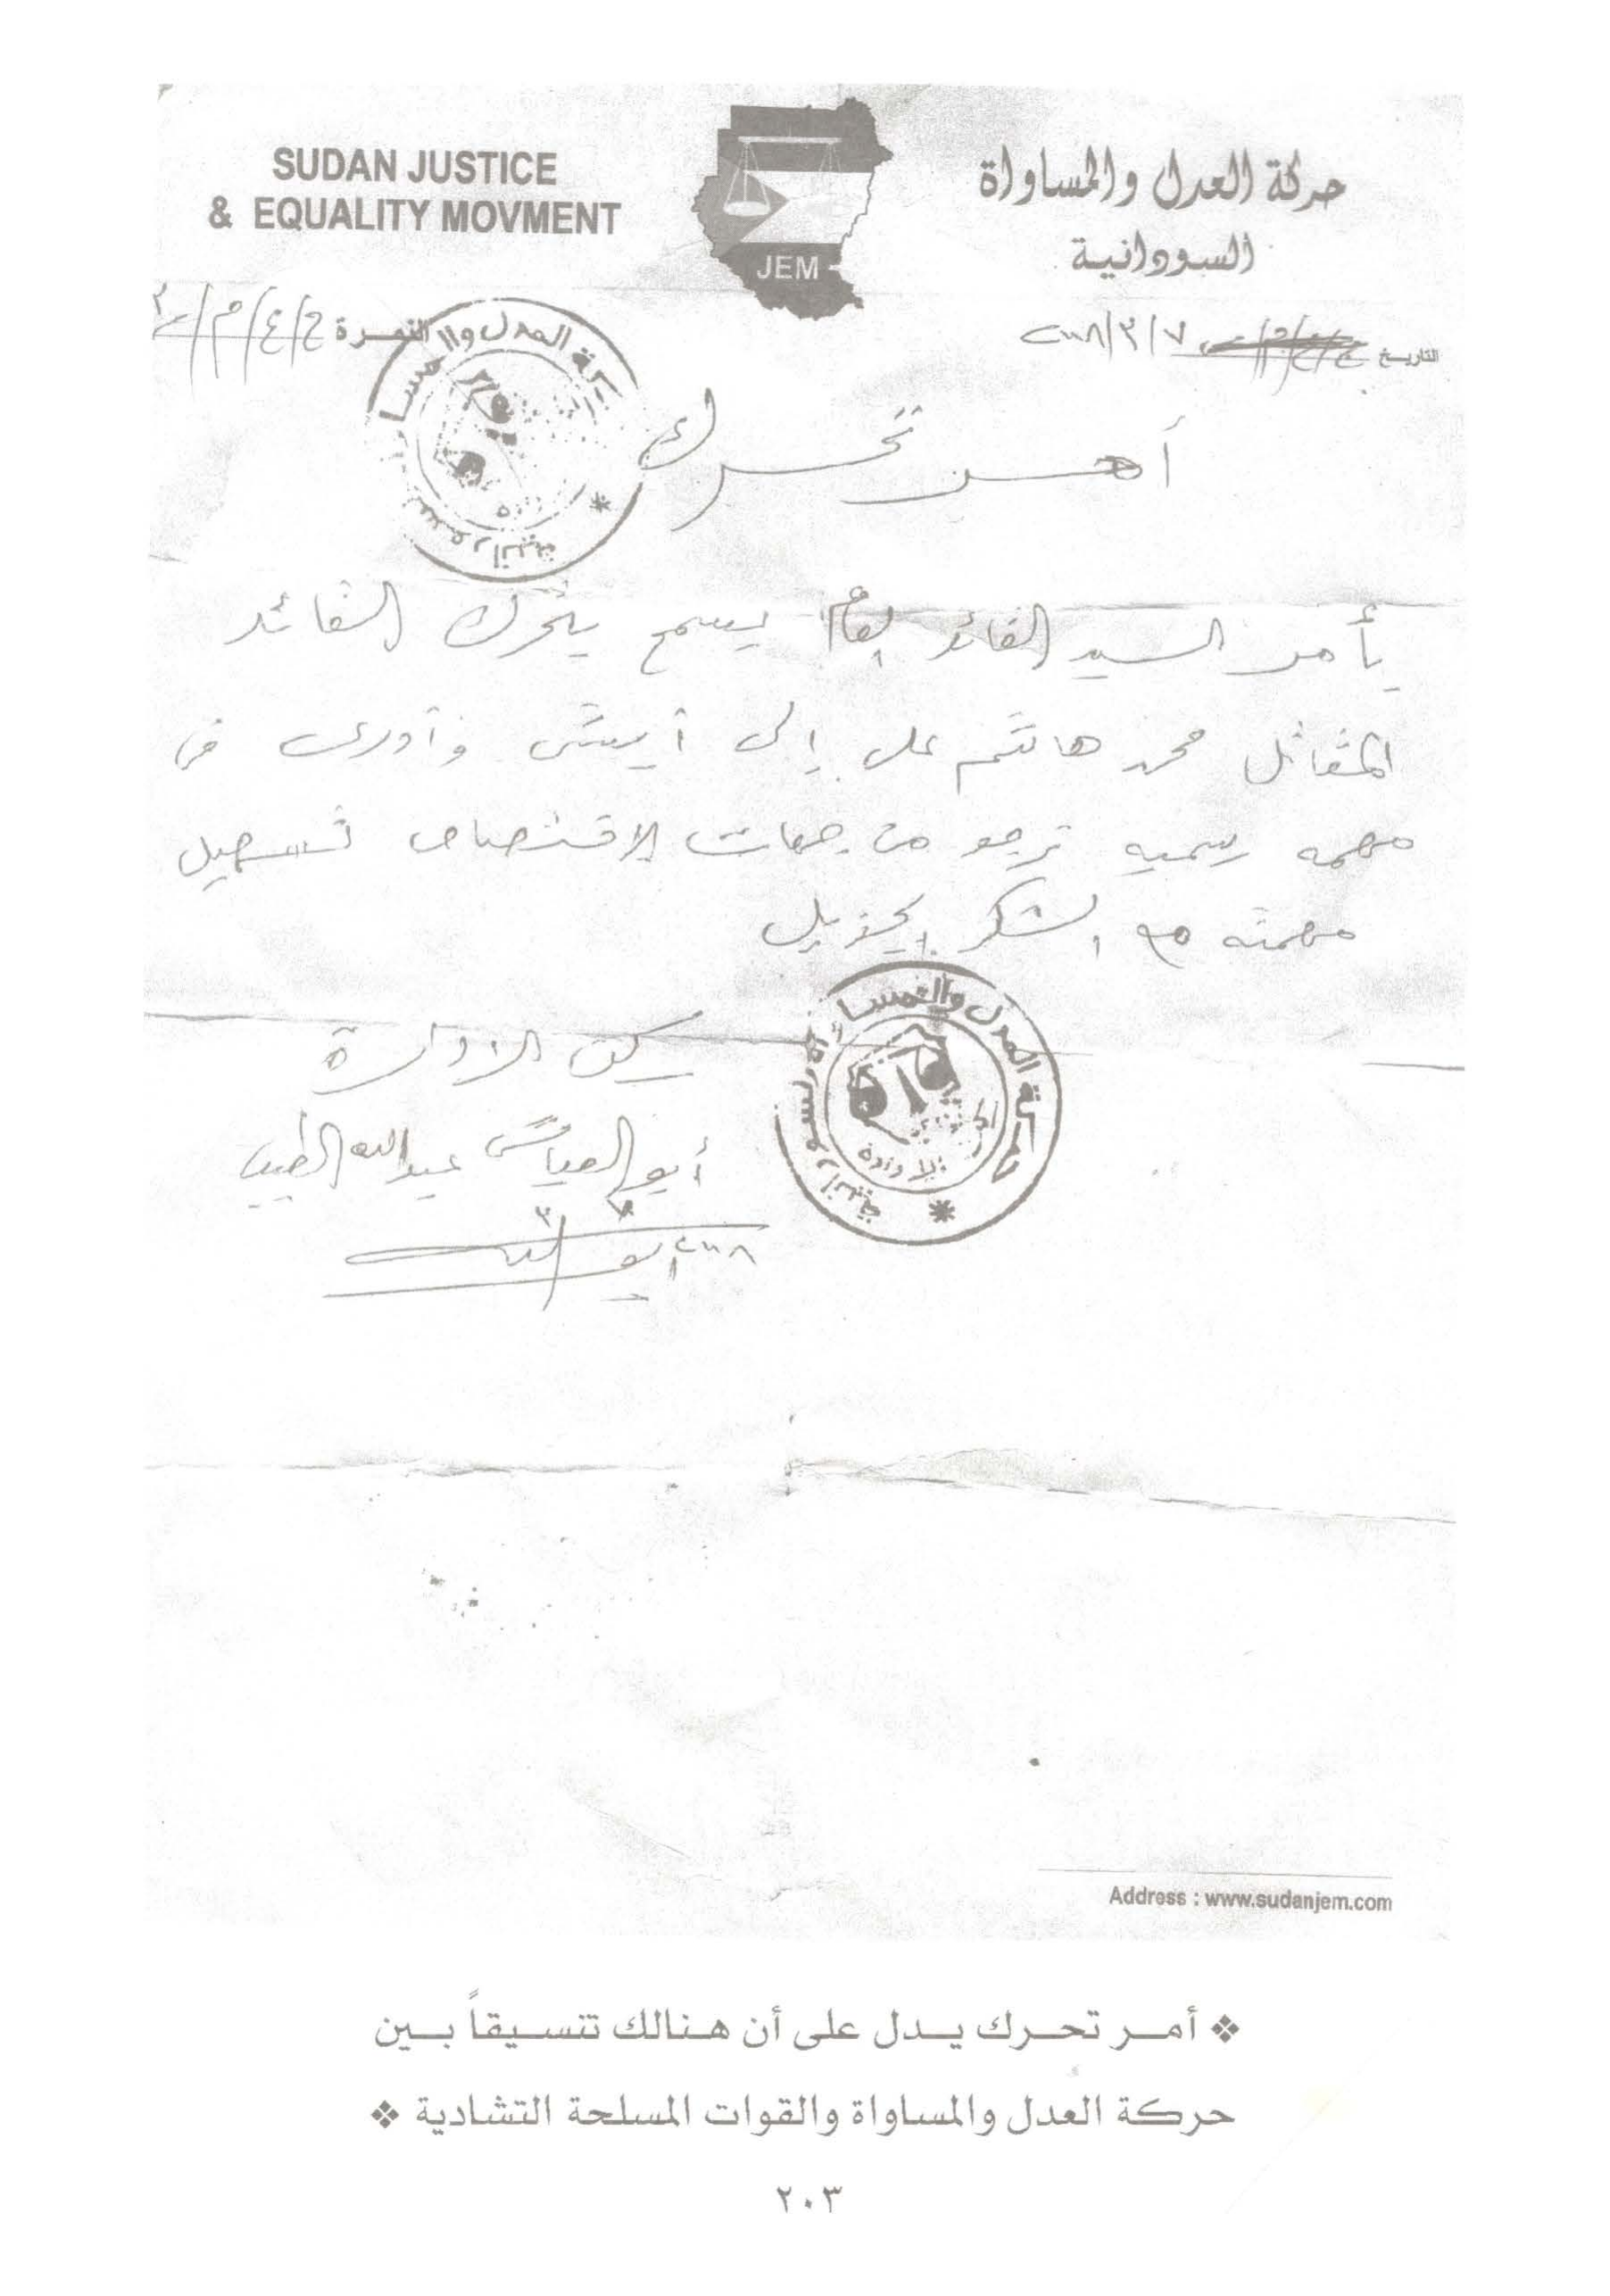 SUDAN JUSTICE
& EQUALITY MOVMENT
حركة العدل والمساواة
السودانية
JEM
التاريخ ٧/٣/٢٠٠٨
النمرة ح/ع/م/
أمر تحرك
يأمر السيد القائد العام يسمح بتحرك القائد
المقاتل محمد هاشم على إلى أبشى وأدرى فى
مهمه رسميه نرجو من جهات الاختصاص تسهيل
مهمته مع الشكر الجزيل
ركن الادارة
أبو العباس عبدالله الطيب
٢٠٠٨
حركة العدل والمساواة السودانية
الادارة
Address : www.sudanjem.com
❖ أمر تحرك يدل على أن هنالك تنسيقاً بين
حركة العدل والمساواة والقوات المسلحة التشادية ❖
٢٠٣